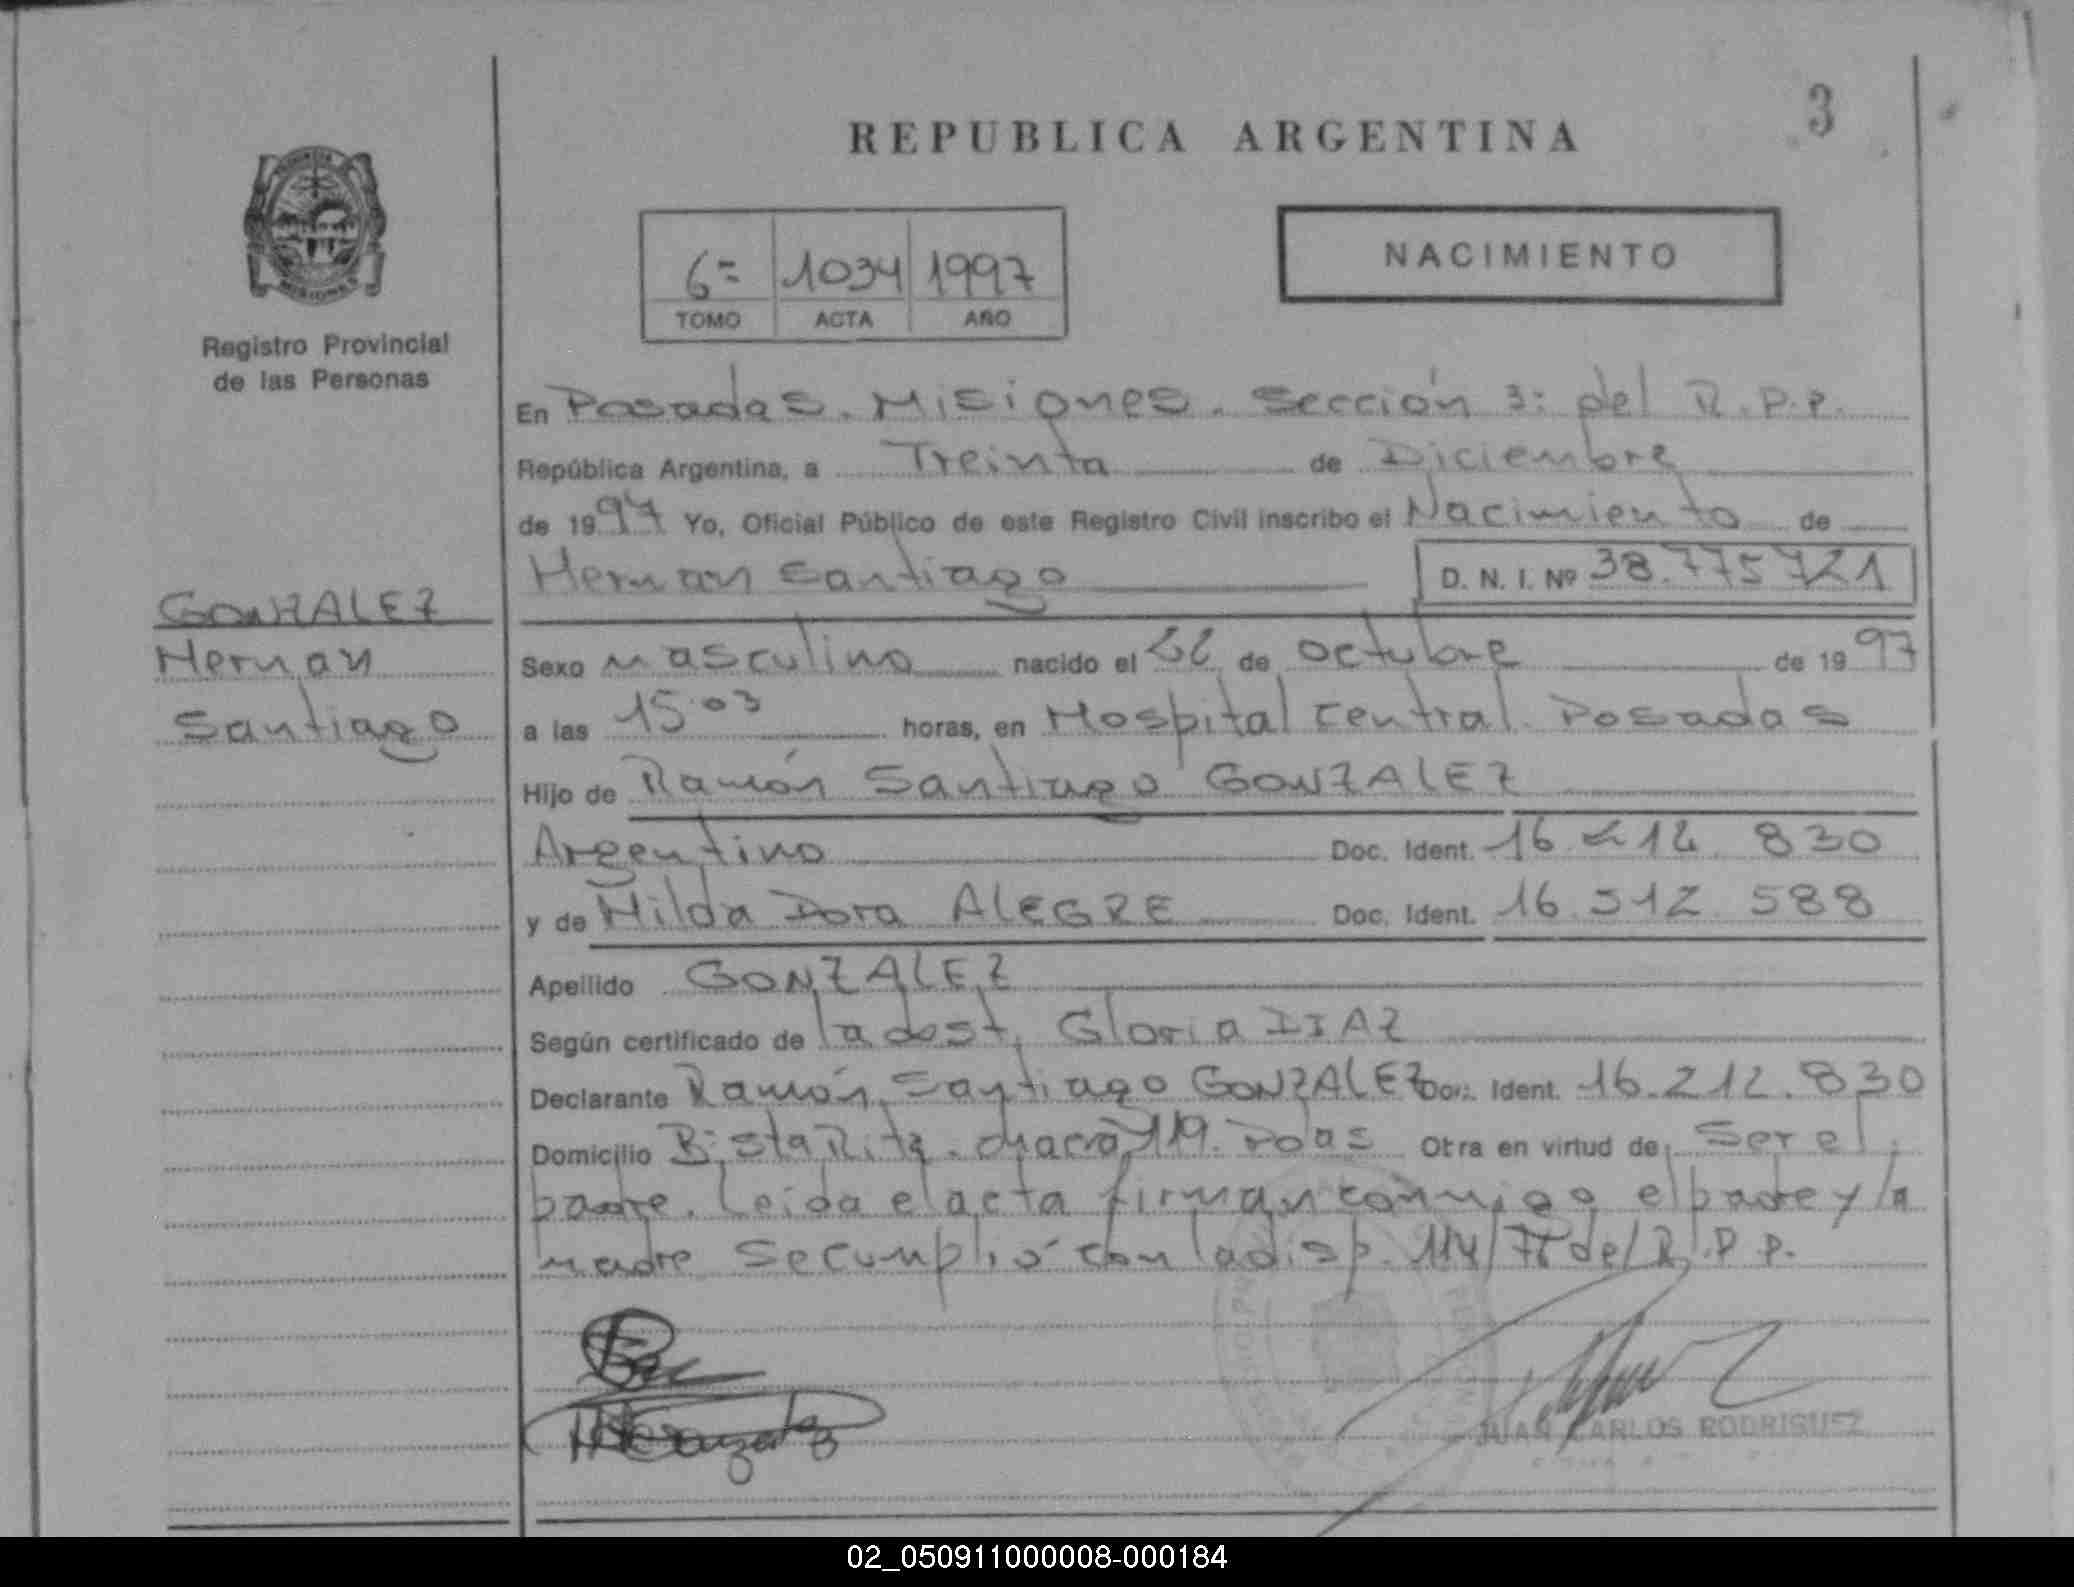 3
REPUBLICA ARGENTINA
NACIMIENTO
6= 1034 1997
TOMO ACTA AÑO
MISIONES
Registro Provincial
de las Personas
En Posadas. Misiones. Sección 3: del R.P.P.
República Argentina, a Treinta de Diciembre
de 1997 Yo, Oficial Público de este Registro Civil inscribo el Nacimiento de
Hernan Santiago D. N. I. Nº 38.775721
GONZALEZ
Hernan
Santiago
Sexo masculino nacido el 22 de octubre de 1997
a las 15.03 horas, en Hospital Central. Posadas
Hijo de Ramón Santiago GONZALEZ
Argentino Doc. Ident. 16.212.830
y de Hilda Dora ALEGRE Doc. Ident. 16.512.588
Apellido GONZALEZ
Según certificado de la obst. Gloria DIAZ
Declarante Ramón Santiago GONZALEZ Doc. Ident. 16.212.830
Domicilio Bº sta Rita. chacra 119. Pdas Otra en virtud de Ser el
padre. Leida el acta firman conmigo el padre y la
madre Se cumplió con la disp. 114/ del R.P.P.
JUAN CARLOS RODRIGUEZ
02_050911000008-000184